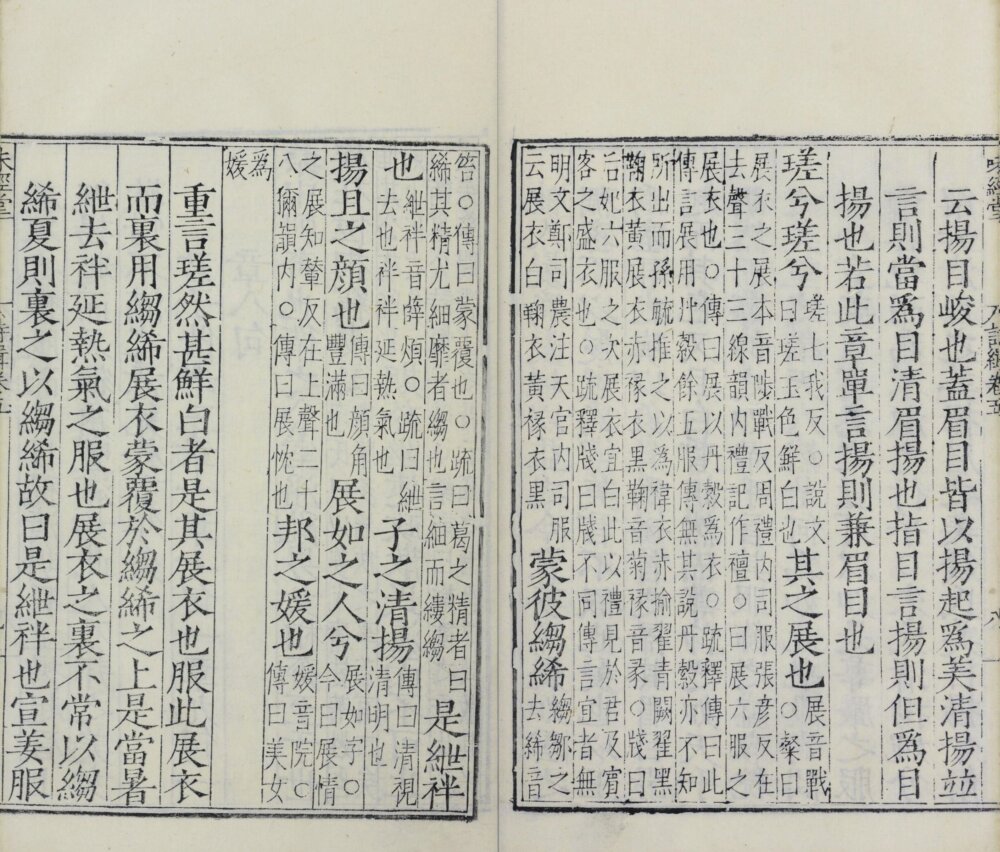 云揚目峻也蓋眉目皆以揚起爲美清揚並
言則當爲目清眉揚也指目言揚則但爲目
揚也若此章單言揚則兼眉目也
瑳兮瑳兮瑳七我反○說文曰瑳玉色鮮白也其之展也展音戰○粲曰
展衣之展本音陟戰反周禮內司服張彥反在
去聲三十三線韻內禮記作襢○曰展六服之
展衣也○傳曰展以丹縠爲衣○疏釋傳曰此
傳言展用丹縠餘五服傳無其說丹縠亦不知
所出而孫毓推之以爲褘衣赤揄翟青闕翟黑
鞠衣黃展衣赤褖衣黑鞠音菊褖音彖○牋曰
后妃六服之次展衣宜白此以禮見於君及賓
客之盛衣也○疏釋牋曰牋不同傳言宜者無
明文鄭司農注天官內司服云展衣白鞠衣黃褖衣黑蒙彼縐絺縐鄒之去絺音
笞○傳曰蒙覆也○疏曰葛之精者曰絺其精尤細靡者縐也言細而縷縐是紲袢
也紲袢音薛煩○疏曰紲去也袢袢延熱氣也子之清揚傳曰清視清明也
揚且之顏也傳曰顏角豐滿也展如之人兮展如字○今曰展情
之展知輦反在上聲二十八獮韻內○傳曰展忱也邦之媛也媛音院○傳曰美女
爲媛
重言瑳然甚鮮白者是其展衣也服此展衣
而裏用縐絺展衣蒙覆於縐絺之上是當暑
紲去袢延熱氣之服也展衣之裏不常以縐
絺夏則裏之以縐絺故曰是紲袢也宣姜服